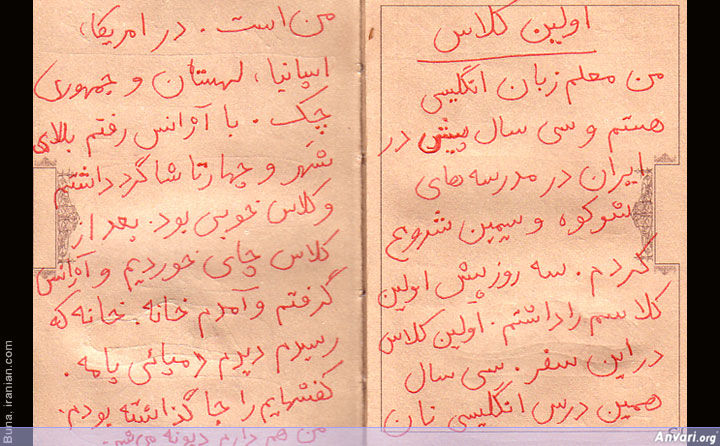 اولین کلاس
من معلم زبان انگلیسی
هستم و سی سال پیش در
ایران در مدرسه های
شوکوه و سیمین شروع
کردم. سه روز پیش اولین
کلاسم را داشتم. اولین کلاس
در این سفر. سی سال
همین درس انگلیسی نان
من است. در امریکا،
اسپانیا، لهستان و جمهوری
چک. با آژانس رفتم بالای
شهر و چهارتا شاگرد داشتم
و کلاس خوبی بود. بعد از
کلاس چای خوردیم و آژانس
گرفتم و آمدم خانه. خانه که
رسیدم دیدم دمپائی پامه.
کفشهایم را جا گذاشته بودم.
من هم دارم دیوونه می شم.
Buna, iranian.com
Anvari.org